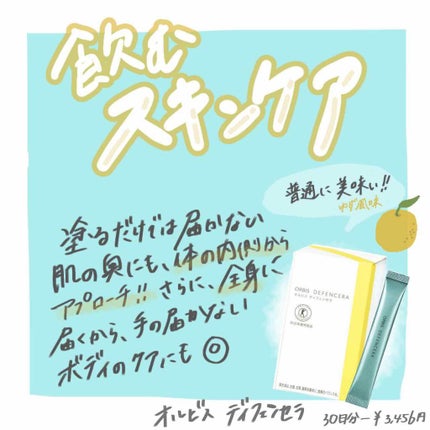 飲む
スキンケア
普通に美味い!!
ゆず風味
塗るだけでは届かない
肌の奥にも、体の内側から
アプローチ!! さらに、全身に
届くから、手の届かない
ボディのケアにも◎
ORBIS DEFENCERA
オルビス ディフェンセラ
ORBIS DEFENCERA
オルビス ディフェンセラ
30日分ー¥3,456円